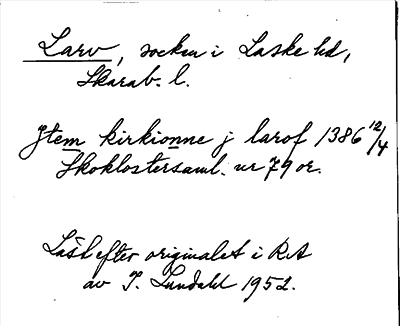 Larv, socken i Laske hd,
Skarab. l.
Jtem kirkionne j larof 1386 12/4
Skoklostersaml. nr 79 or.
Läst efter originalet i RA
av I. Lundahl 1952.